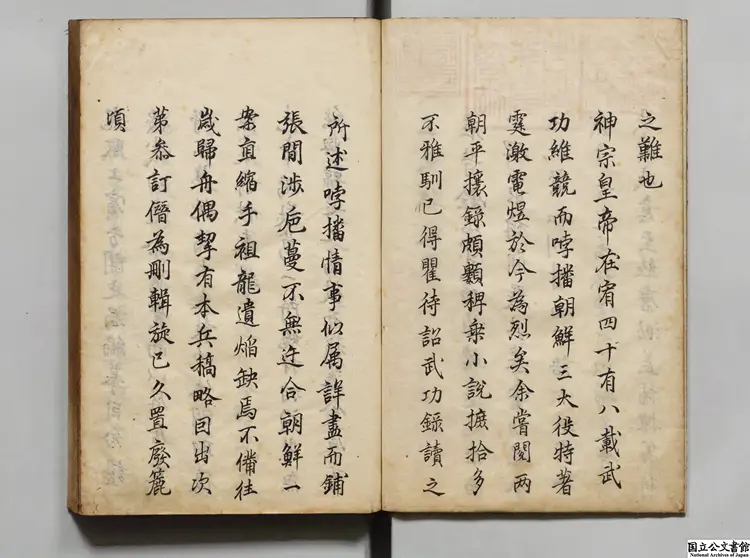 之難也
神宗皇帝在宥四十有八載武
功維競而哱播朝鮮三大役特著
霆激電煜於今為烈矣余嘗閱两
朝平攘錄頗類稗乗小說摭拾多
不雅馴已得瞿待詔武功錄讀之
所述哱播情事似属詳盡而鋪
張間渉巵蔓不無迕合朝鮮一
案直縮手祖龍遺焰缺焉不備往
歳歸舟偶挈有本兵稿略因出次
苐叅訂僭為刪輯旋已久置廢簏
頃
国立公文書館
National Archives of Japan